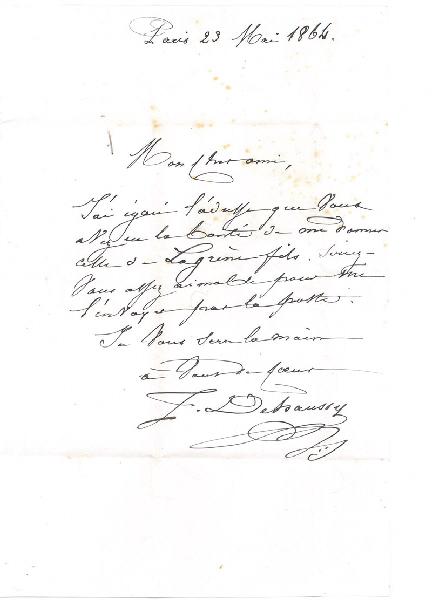 Paris 23 Mai 1864.
Mon cher ami,
J'ai égaré l'adresse que Vous
avez eu la bonté de me donner
celle de Lagrène fils. Soyez-
Vous assez aimable pour me
l'envoyer par la poste.
Je Vous serre la main
à Vous de cœur
F. Dehaussy